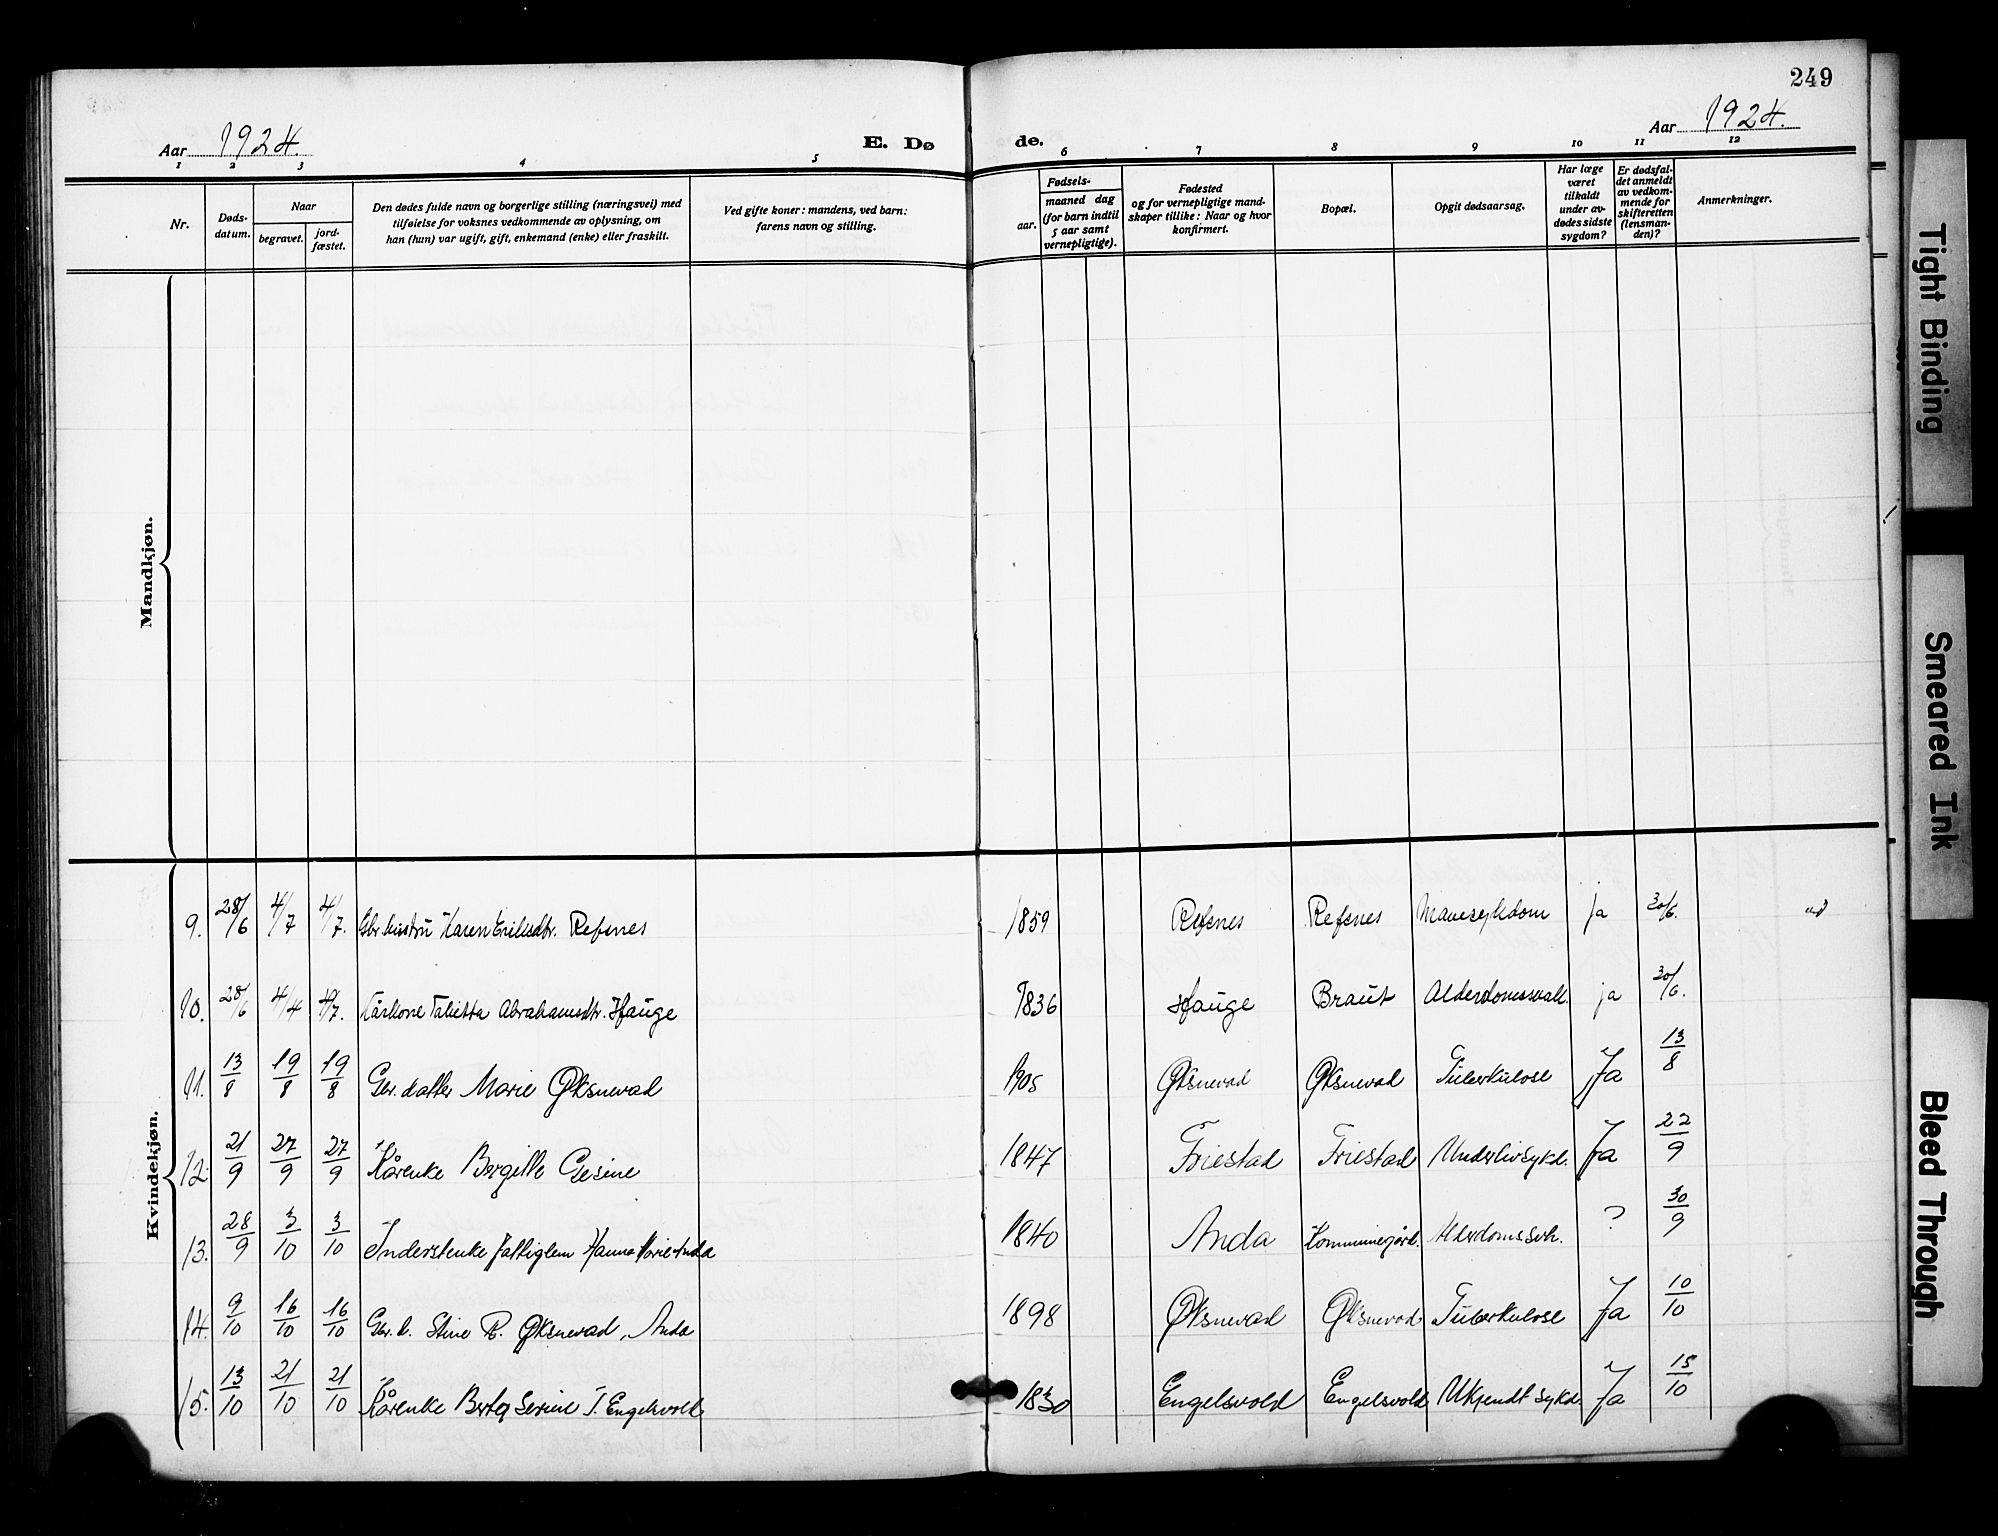 249
Aar 1924. E. Dø de. Aar 1924.
1 2 3 4 5 6 7 8 9 10 11 12
Nr.
Døds-
datum.
Naar
begravet.
jord-
fæstet.
Den dødes fulde navn og borgerlige stilling (næringsvei) med
tilføielse for voksnes vedkommende av oplysning, om
han (hun) var ugift, gift, enkemand (enke) eller fraskilt.
Ved gifte koner: mandens, ved barn:
farens navn og stilling.
aar.
Fødsels-
maaned dag
(for barn indtil
5 aar samt
vernepligtige).
Fødested
og for vernepligtige mand-
skaper tillike: Naar og hvor
konfirmert.
Bopæl.
Opgit dødsaarsag.
Har læge
været
tilkaldt
under av-
dødes sidste
sygdom?
Er dødsfal-
det anmeldt
av vedkom-
mende for
skifteretten
(lensman-
den)?
Anmerkninger.
Mandkjøn.
Kvindekjøn.
9. 28/6 4/7 4/7. Gbr. hustru Karen Eriksdtr. Refsnes 1859 Refsnes Refsnes Mavesykdom ja 30/6.
10. 28/6 4/4 4/7. Kårkone Tabietta Abrahamsdtr. Hauge 1836 Hauge Braut Alderdomssvakh. ja 30/6.
11. 13/8 19/8 19/8 Gbr. datter Marie Øksnevad 1905 Øksnevad Øksnevad Tuberkulose Ja 13/8
12. 21/9 27/9 27/9 Kårenke Bergitte Gesine 1847 Friestad Friestad Underlivsykd. Ja 22/9
13. 28/9 3/10 3/10 Inderstenke fattiglem Hanna Marie Anda 1840 Anda Kommunegård. Alderdomssvh. ? 30/9
14. 9/10 16/10 16/10 Gbr. d. Stine R. Øksnevad, Anda 1898 Øksnevad Øksnevad Tuberkulose Ja 10/10
15. 13/10 21/10 21/10 Kårenke Berta Serine T. Engelsvold 1830 Engelsvold Engelsvold Ukjendt sykd. Ja 15/10
Tight Binding
Smeared Ink
Bleed Through